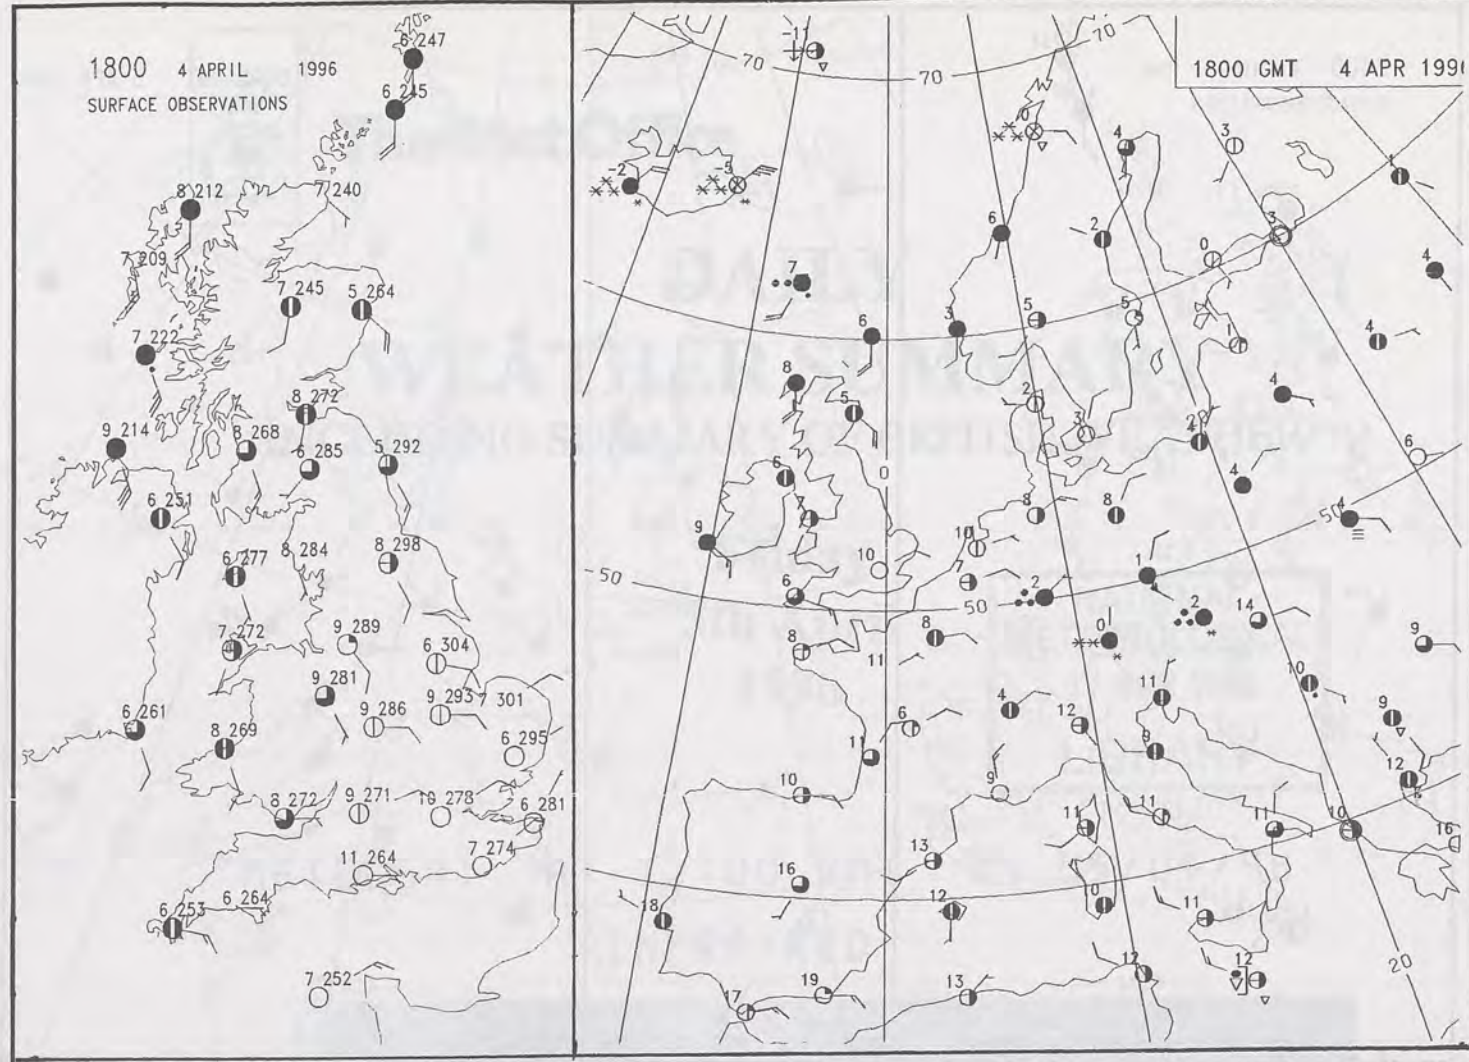 1800 4 APRIL 1996
SURFACE OBSERVATIONS
6 247
6 245
8 212
7 240
7 209
7 245
5 264
7 222
8 272
9 214
8 268
6 285
5 292
6 251
6 277
8 284
8 298
7 272
9 289
6 304
9 281
9 293
7 301
6 261
9 286
8 269
6 295
8 272
9 271
10 278
6 281
7 274
11 264
6 264
6 253
7 252
1800 GMT 4 APR 199
-11
70
70
70
0
4
3
1
-2
-5
6
2
3
0
4
7
6
3
5
5
1
4
8
5
2
3
4
2
6
6
0
4
7
8
8
4
50
9
10
10
50
6
7
50
2
1
2
14
8
8
11
0
9
10
11
4
12
9
6
11
9
12
10
9
11
11
11
10
16
13
16
12
0
18
11
12
12
20
17
19
13